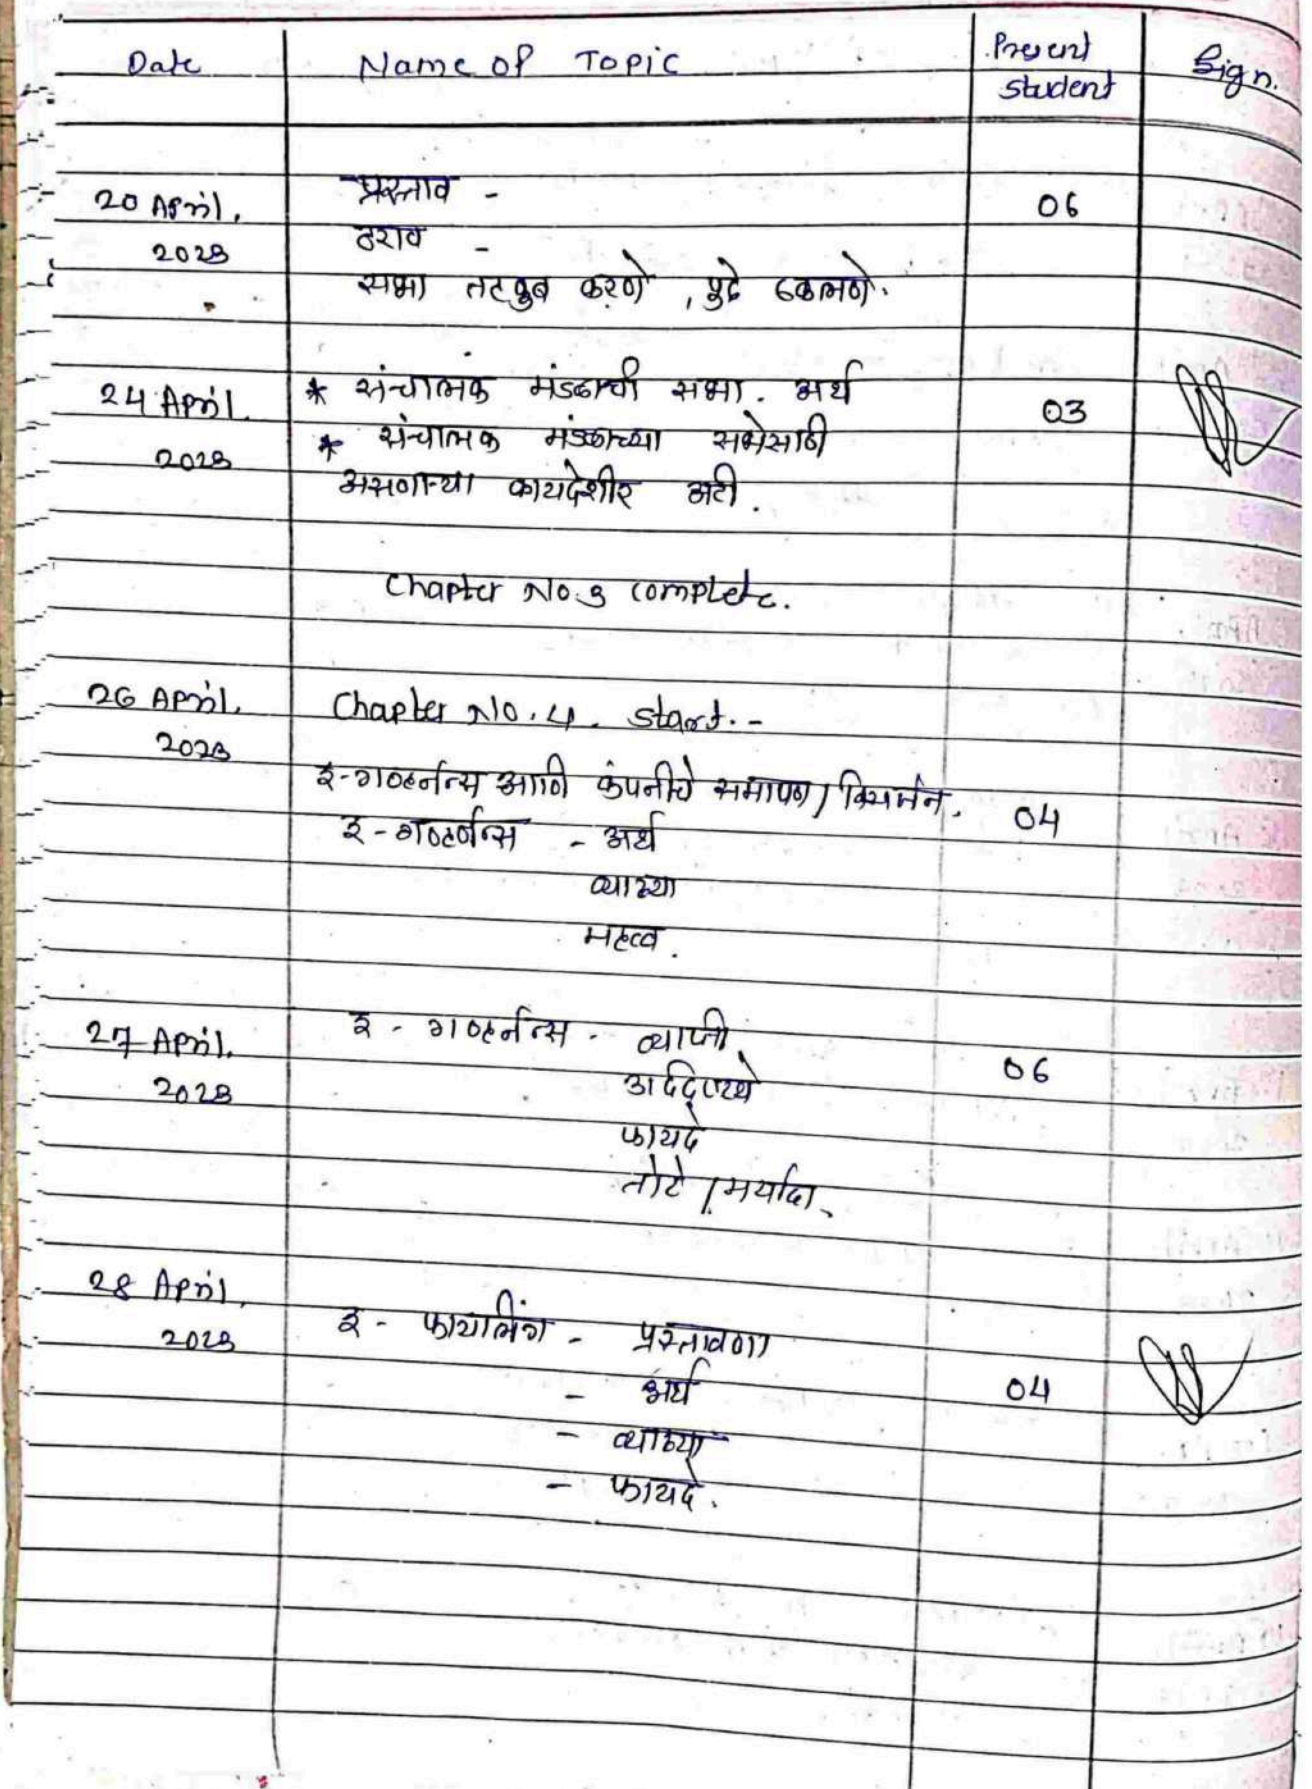 Date Name of Topic Present student Sign.
20 April, 2023 प्रस्ताव - 06
ठराव -
सभा तहकुब करणे, पुढे ढकलणे.
24 April. 2023 * संचालक मंडळाची सभा. अर्थ 03
* संचालक मंडळाच्या सभेसाठी
असणाऱ्या कायदेशीर अटी.
Chapter No. 3 complete.
26 April. 2023 Chapter No. 4. start. -
इ-गव्हर्नन्स आणि कंपनीचे समापण / विसर्जन. 04
इ - गव्हर्नन्स - अर्थ
व्याख्या
महत्व.
27 April. 2023 इ - गव्हर्नन्स - व्याप्ती 06
फायदे
तोटे / मर्यादा.
28 April, 2023 इ - फायलिंग - प्रस्तावणा
- अर्थ 04
- व्याख्या
- फायदे.